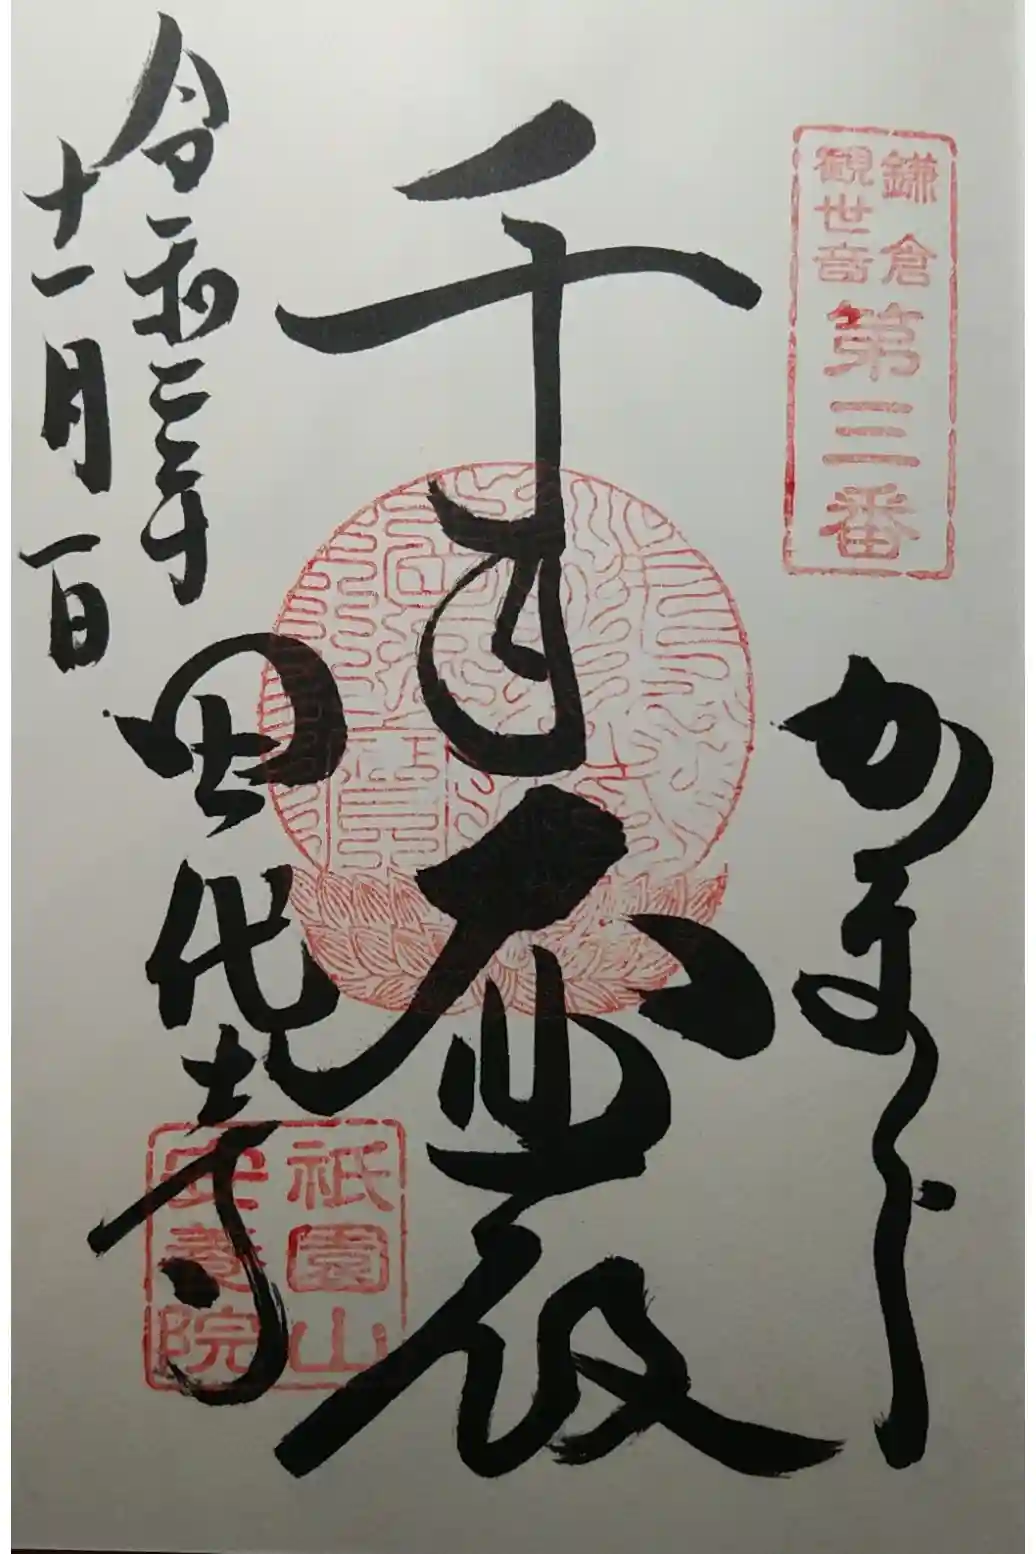 鎌倉
観世音
第三番
かまくら
千手大悲殿
令和三年
十一月一日
田代寺
祇園山
安養院